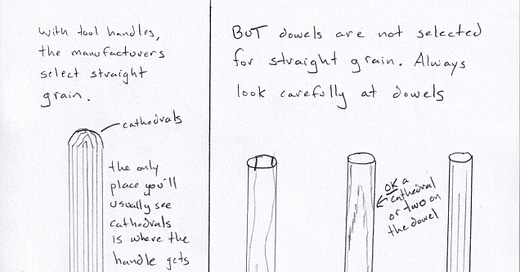 With tool handles,
the manufacturers
select straight
grain.
cathedrals
the only
place you'll
usually see
cathedrals
is where the
handle gets
BUT dowels are not selected
for straight grain. Always
look carefully at dowels
OK a
cathedral
or two on
the dowel